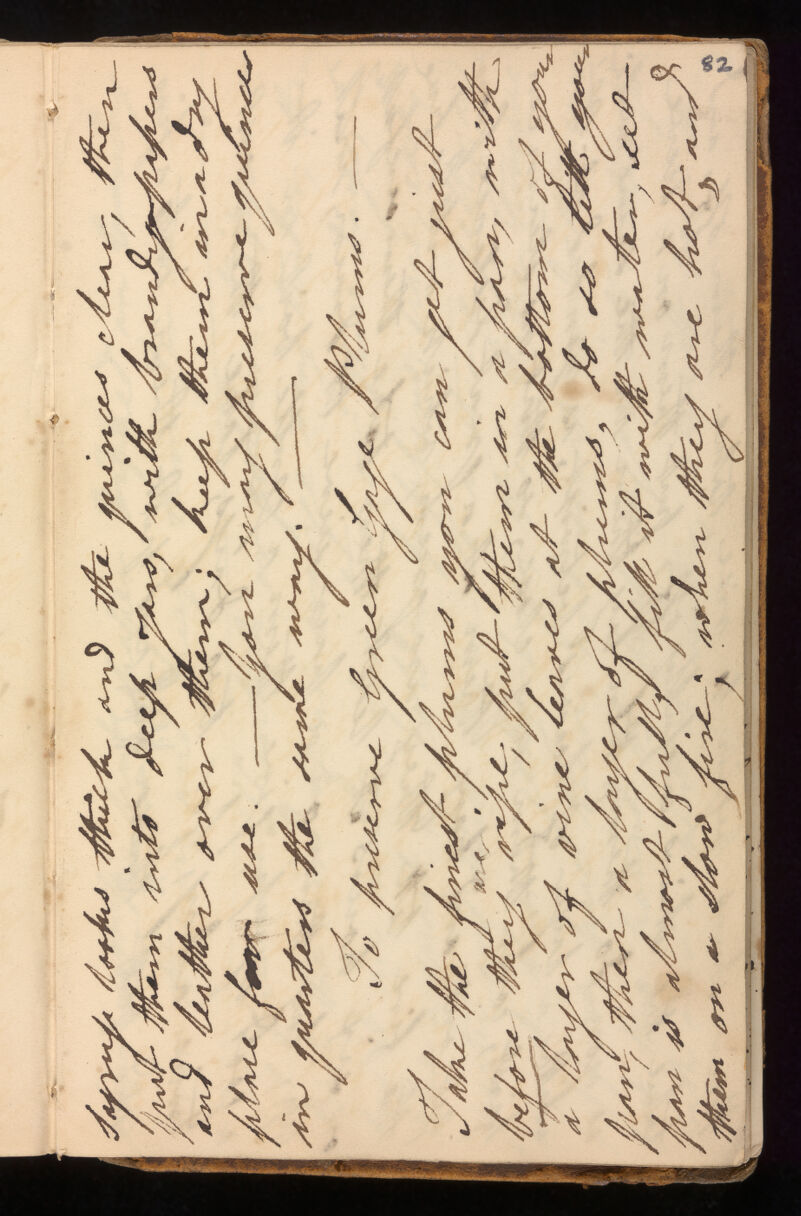 82
syrup looks thick and the quinces clear, then
put them into deep jars, with brandy papers
and leather over them; keep them in a dry
place for use. — You may preserve quinces
in quarters the same way. —
To preserve Green Gage Plums. —
Take the finest plums you can get just
before they are ripe, put them in a pan, with
a layer of vine leaves at the bottom of your
pan, then a layer of plums, do so till your
pan is almost full, fill it with water, set
them on a slow fire; when they are hot, and